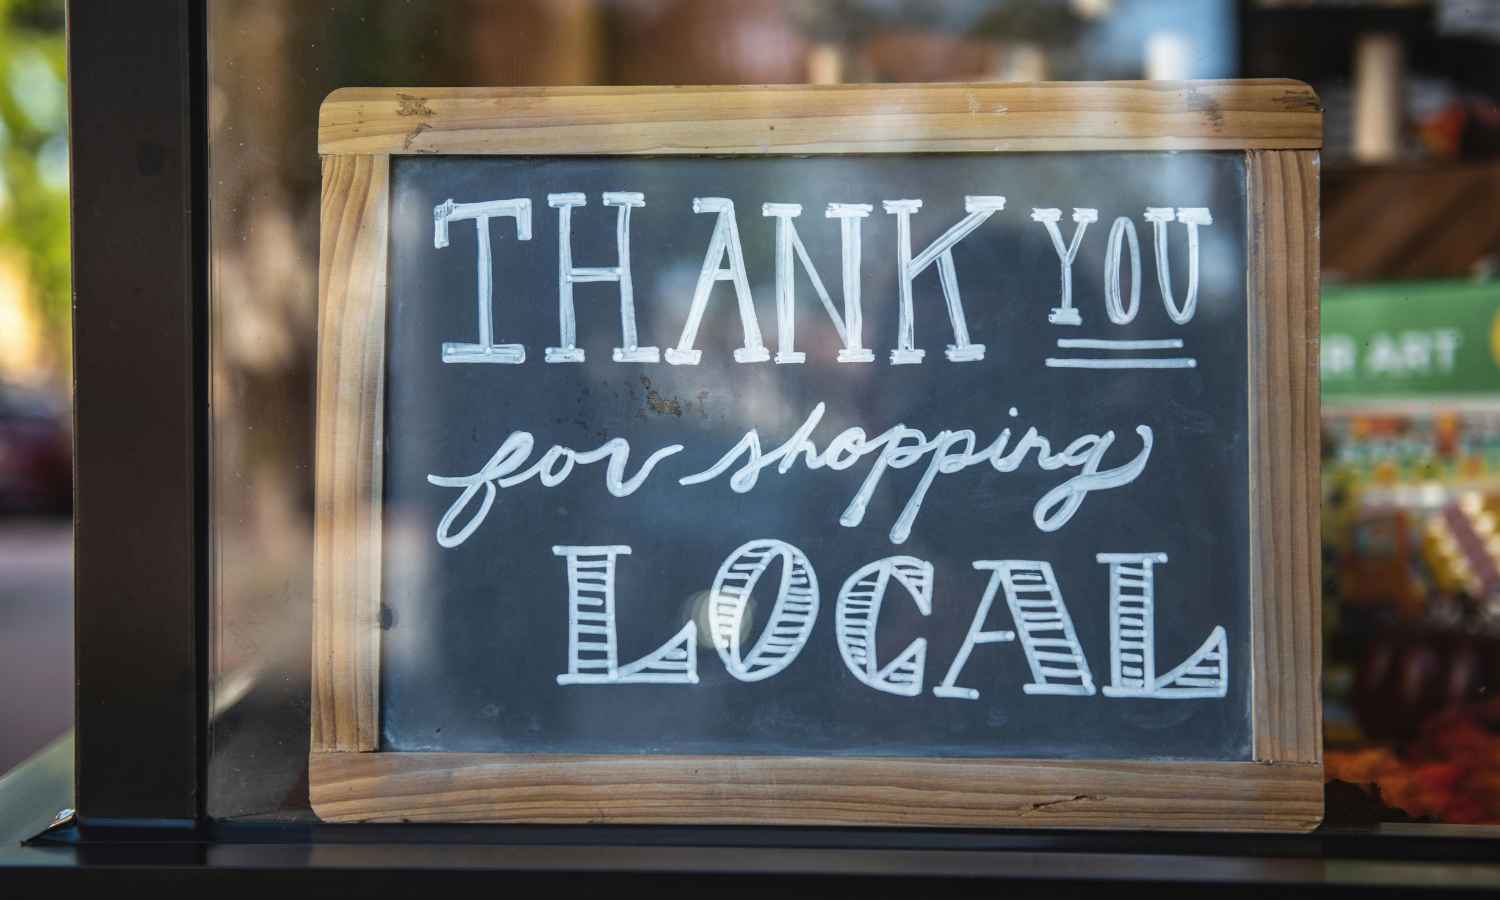 THANK YOU
for shopping
LOCAL
R ART